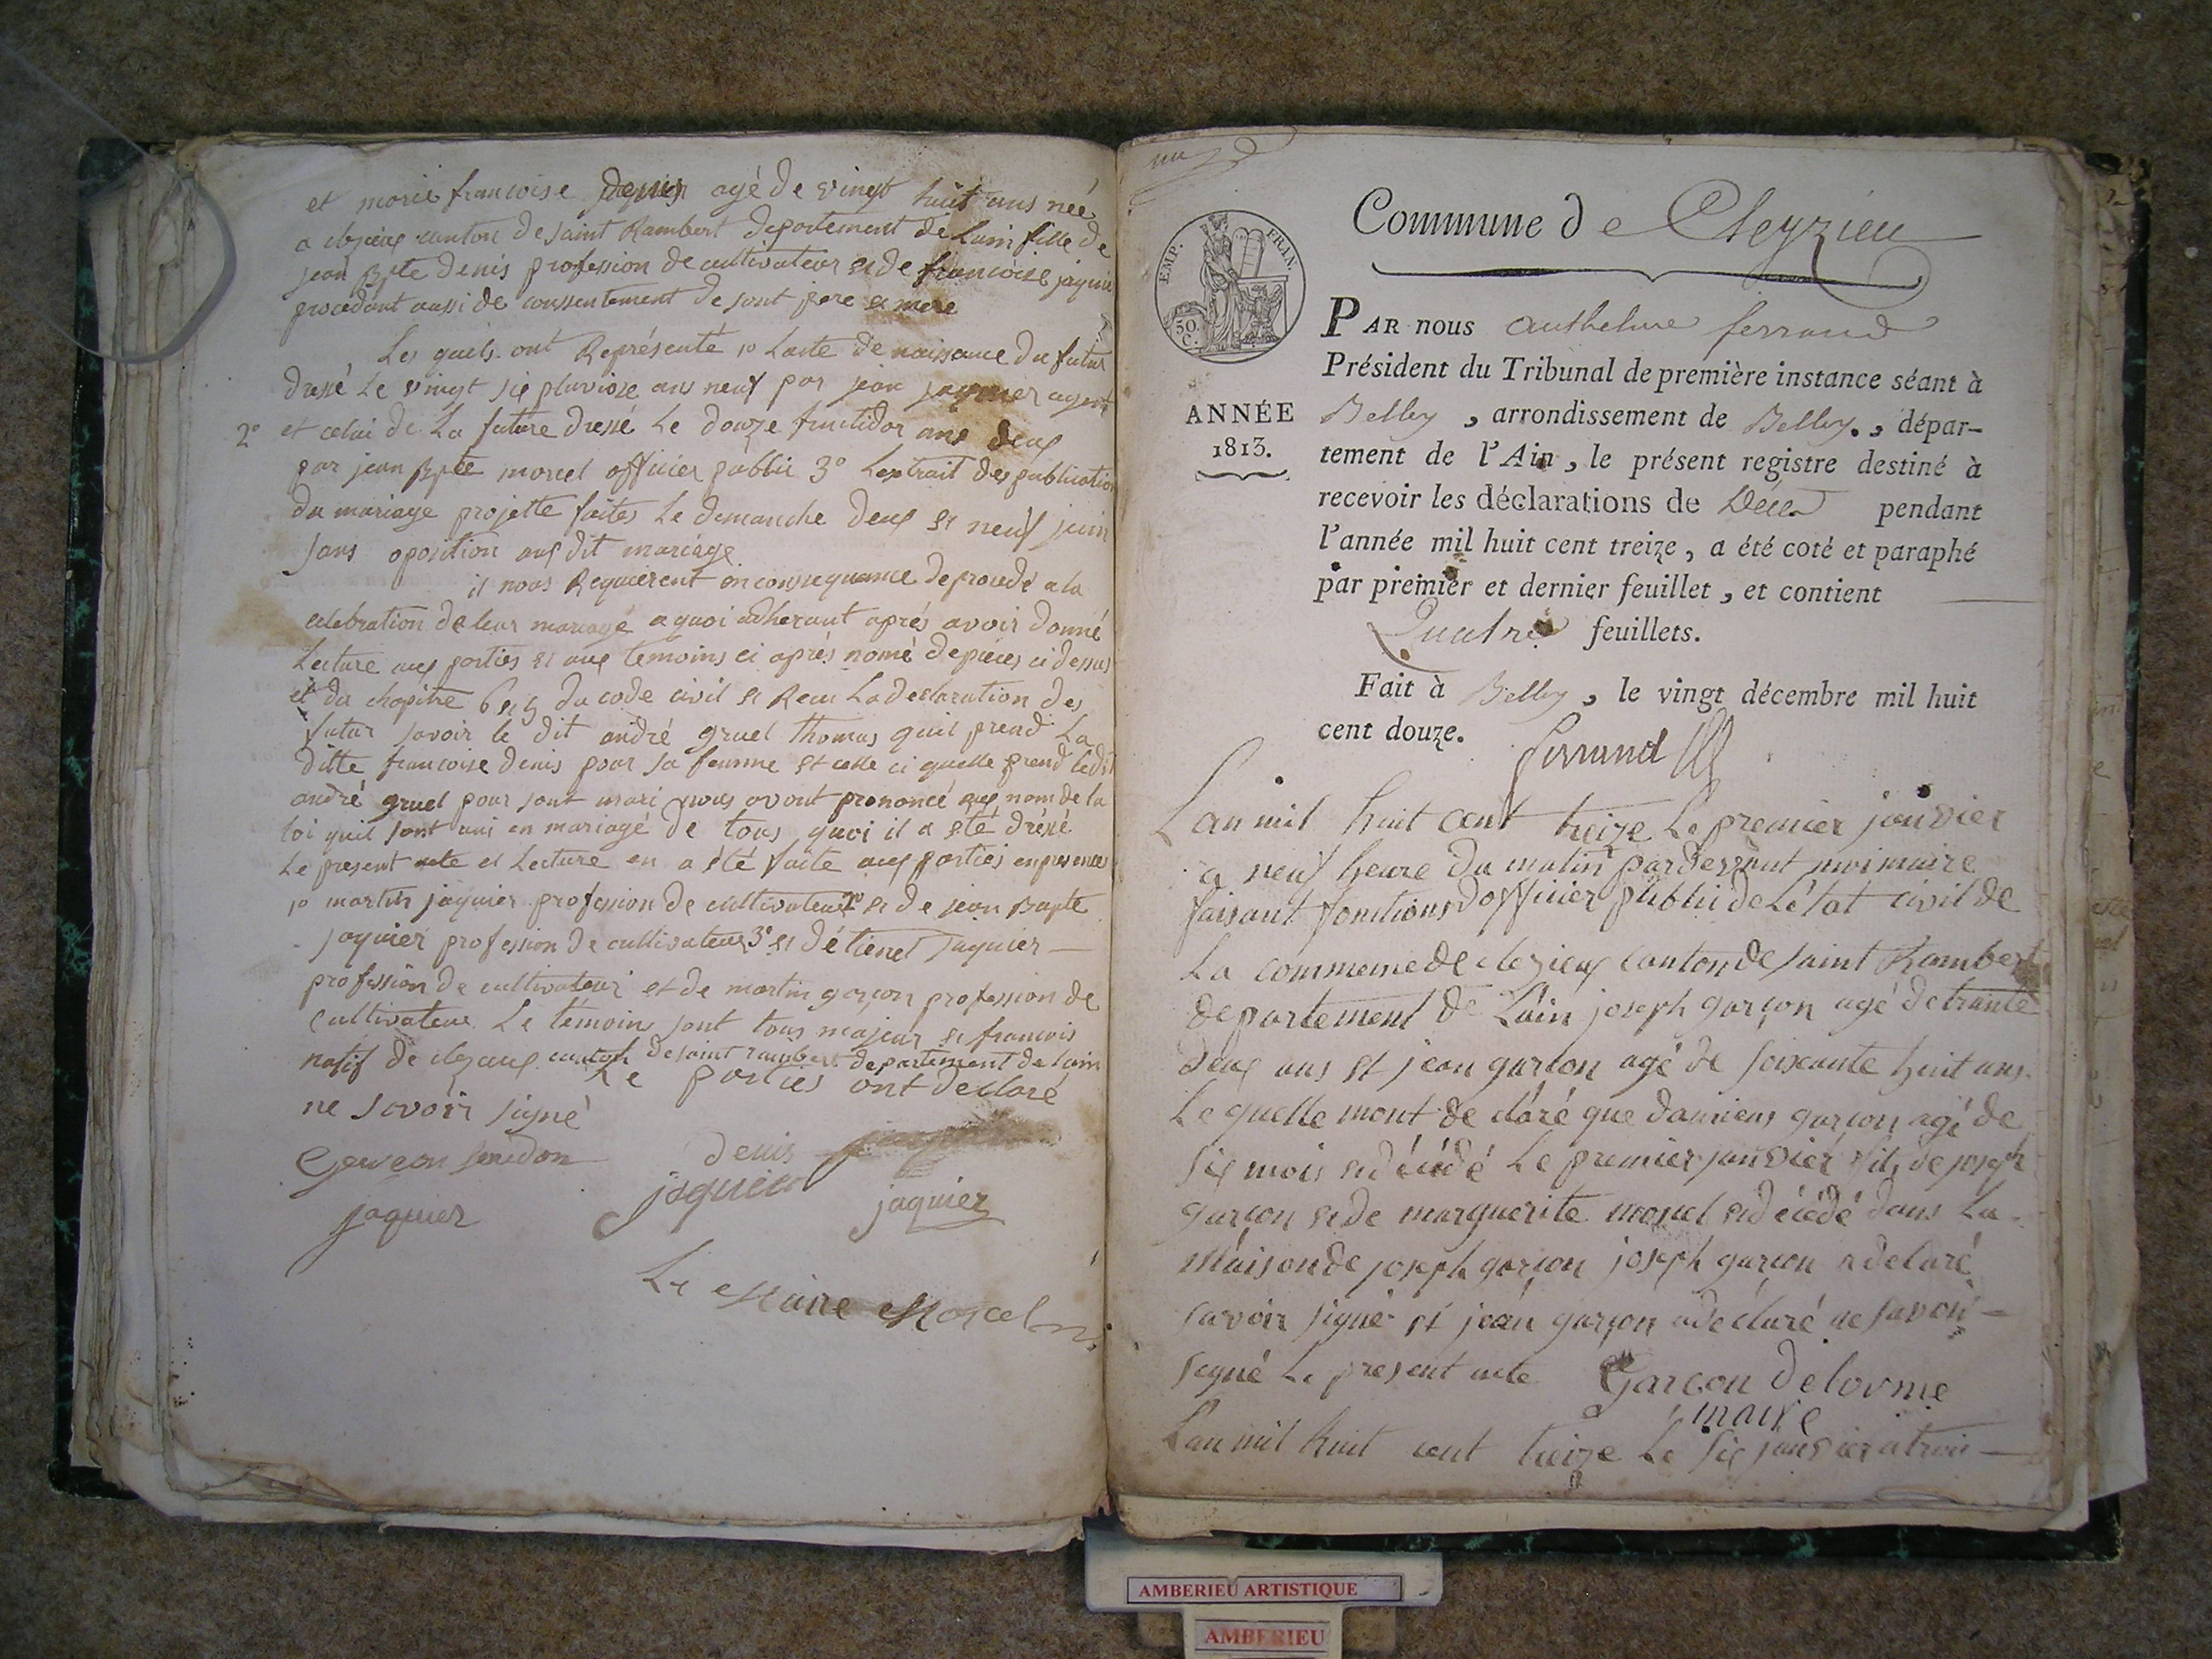 et marie francoise denis agé de vingt huit ans née
a clezieux canton de saint Rambert departement de Lain fille de
jean Bpte denis profession de cultivateur et de francoise jaquie
procedant aussi de consentement de sont pere et mere
Les quels ont Représenté 1º Lacte de naissance du futur
dressé Le vingt six pluviose ans neuf par jean jaquier agent
2º et celui de La future dressé Le douze fructidor ans deux
par jean Bpte morcel officier public 3º Lextrait des publication
du mariage projetté faites Le dimanche deux et neuf juin
sans oposition aux dit mariage
il nous Requierent en consequance de procedé a la
celebration de leur mariage a quoi adherant aprés avoir donné
Lecture aux parties et aux temoins ci aprés nomé de pieces ci dessus
et du chapitre 6 du code civil et Recu La declaration des
futur savoir le dit andré gruel thomas quil prend La
ditte francoise denis pour sa femme et celle ci quelle prend ledit
andré gruel pour sont mari nous avont prononcé aux nom de la
loi quil sont uni en mariagé de tous quoi il a été dréssé
Le present acte et Lecture en a été faite aux parties en presences
1º martin jaquier profession de cultivateur 2º et de jean Bapte
jaquier profession de cultivateur 3º et détienet jaquier
profession de cultivateur et de martin garçon profession de
cultivateur Le temoins sont tous majeur et francois
natif de clezieux canton de saint rambert departement de lain
Le parties ont declaré
ne savoir signé
Garcon denis
jaquier jaquier jaquier
Le Maire Morcel
EMP. FRAN.
50. C.
Commune de Cleyzieu
PAR nous Anthelme ferrand
Président du Tribunal de première instance séant à
ANNÉE Belley, arrondissement de Belley, dépar-
1813. tement de l'Ain, le présent registre destiné à
recevoir les déclarations de Décès pendant
l'année mil huit cent treize, a été coté et paraphé
par premier et dernier feuillet, et contient
Quatre feuillets.
Fait à Belley, le vingt décembre mil huit
cent douze. Ferrand
Lan mil huit cent treize Le premier janvier
a neuf heure du matin pardevant moi maire
faisant fonctions dofficier public de Létat civil de
La commune de clezieux canton de saint Rambert
departement de Láin joseph garçon agé de trante
deux ans et jean garcon agé de soixante huit ans
Le quelle mont de claré que damiens garcon agé de
six mois et décédé Le premier janvier fils de joseph
garçon et de marguerite morcel et décédé dans La
Maison de joseph garçon joseph garcon a declaré
savoir signé et jean garçon a declaré ne savoir
signé Le present acte Garcon Delorme
maire
Lan mil huit cent treize Le six janvier a trois
AMBERIEU ARTISTIQUE
AMBERIEU